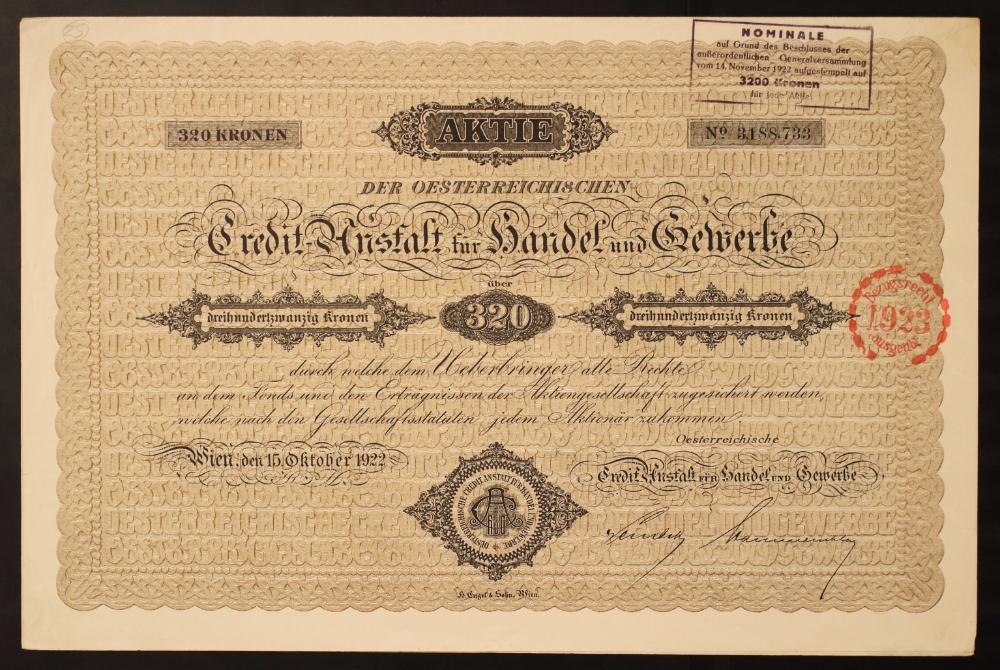 25
NOMINALE
auf Grund des Beschlusses der
außerordentlichen Generalversammlung
vom 14. November 1922 aufgestempelt auf
3200 Kronen
für jede Aktie
320 KRONEN
AKTIE
Nº 3188.733
DER OESTERREICHISCHEN
Credit-Anstalt für Handel und Gewerbe
über
dreihundertzwanzig Kronen
320
dreihundertzwanzig Kronen
Bezugsrecht
1923
ausgeübt
durch welche dem Ueberbringer alle Rechte
an dem Fonds und den Erträgnissen der Aktiengesellschaft zugesichert werden,
welche nach den Gesellschaftsstatuten jedem Aktionär zukommen.
Oesterreichische
Wien, den 15. Oktober 1922
Credit-Anstalt für Handel und Gewerbe
OESTERREICHISCHE CREDIT ANSTALT FÜR HANDEL UND GEWERBE
H. Engel & Sohn, Wien.